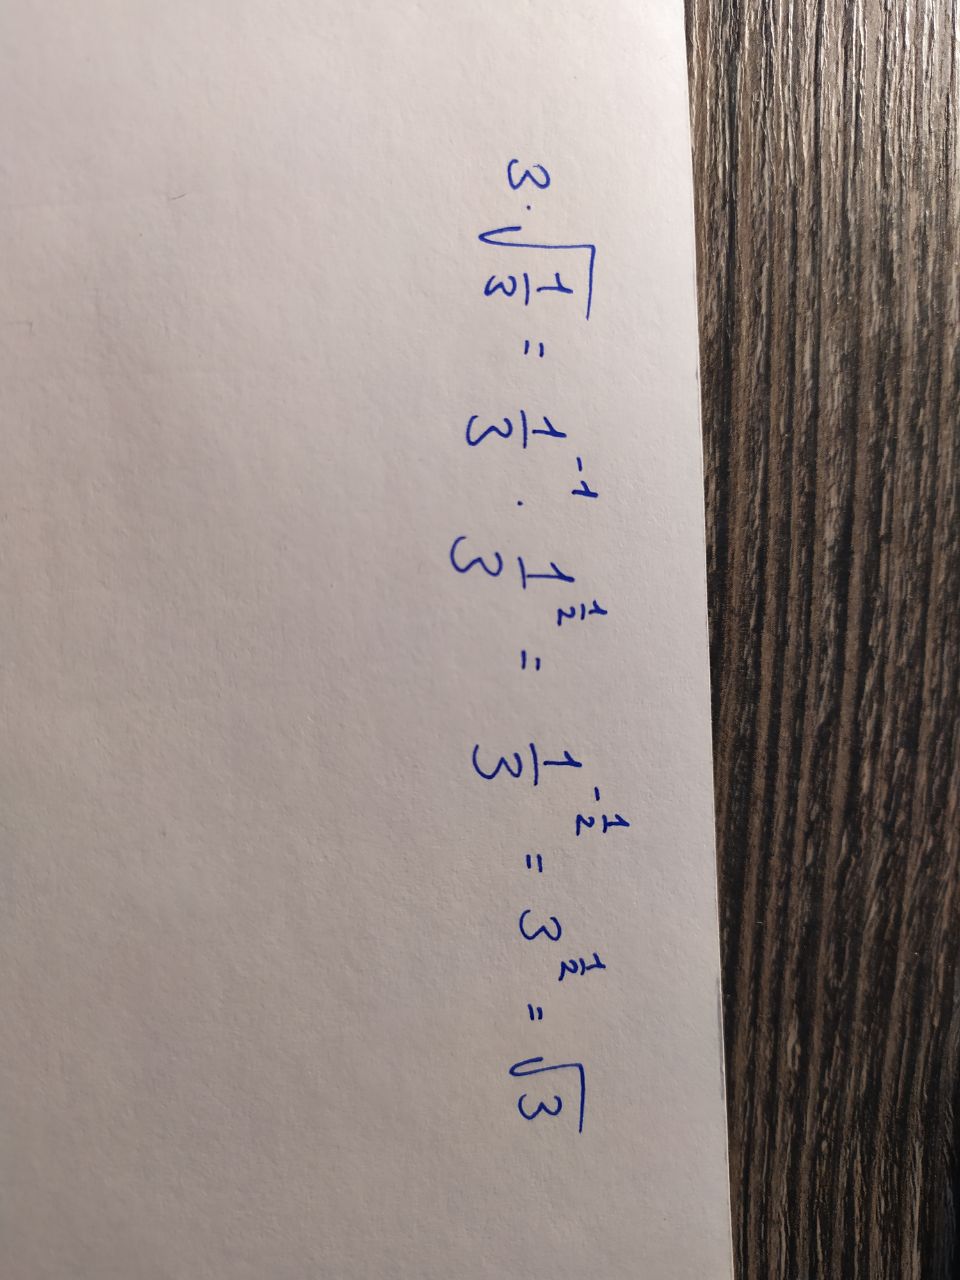 3 · √(1/3) = 1/3^-1 · 1/3^1/2 = 1/3^-1/2 = 3^1/2 = √3